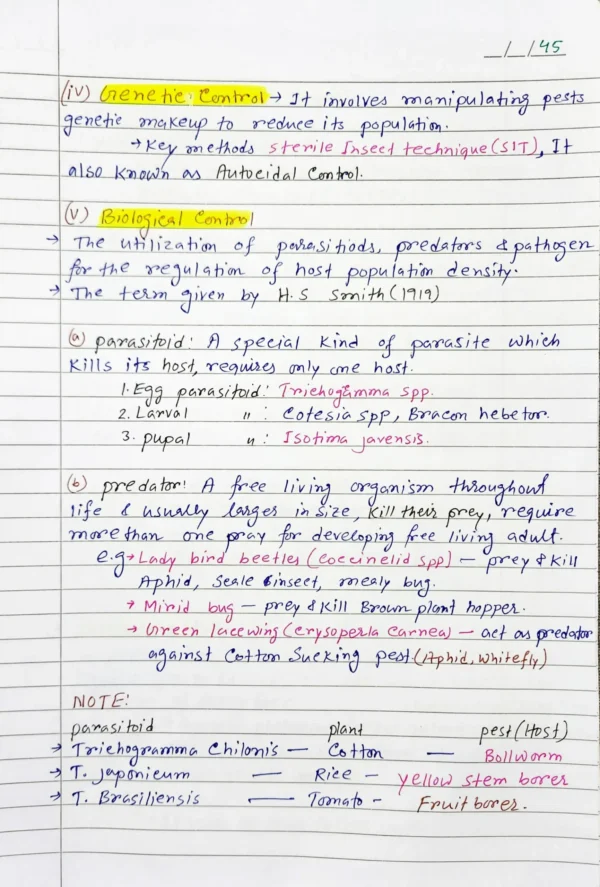 _/_/45
(iv) Genetic Control → It involves manipulating pests
genetic makeup to reduce its population.
→ Key methods sterile Insect technique (SIT), It
also known as Autocidal Control.
(v) Biological Control
→ The utilization of parasitiods, predators & pathogen
for the regulation of host population density.
→ The term given by H.S Smith (1919)
(a) parasitoid: A special kind of parasite which
kills its host, requires only one host.
1. Egg parasitoid: Trichogamma spp.
2. Larval " : Cotesia spp, Bracon hebetor.
3. pupal " : Isotima javensis.
(b) predator: A free living organism throughout
life & usually larges in size, kill their prey, require
more than one pray for developing free living adult.
e.g → Lady bird beetles (Coccinelid spp) – prey & kill
Aphid, Scale insect, mealy bug.
→ Mirid bug – prey & Kill Brown plant hopper.
→ Green lacewing (crysoperla carnea) – act as predator
against Cotton Sucking pest (Aphid, whitefly)
NOTE:
parasitoid plant pest (Host)
→ Trichogramma Chilonis — Cotton — Bollworm
→ T. japonicum — Rice – yellow stem borer
→ T. Brasiliensis — Tomato – Fruit borer.